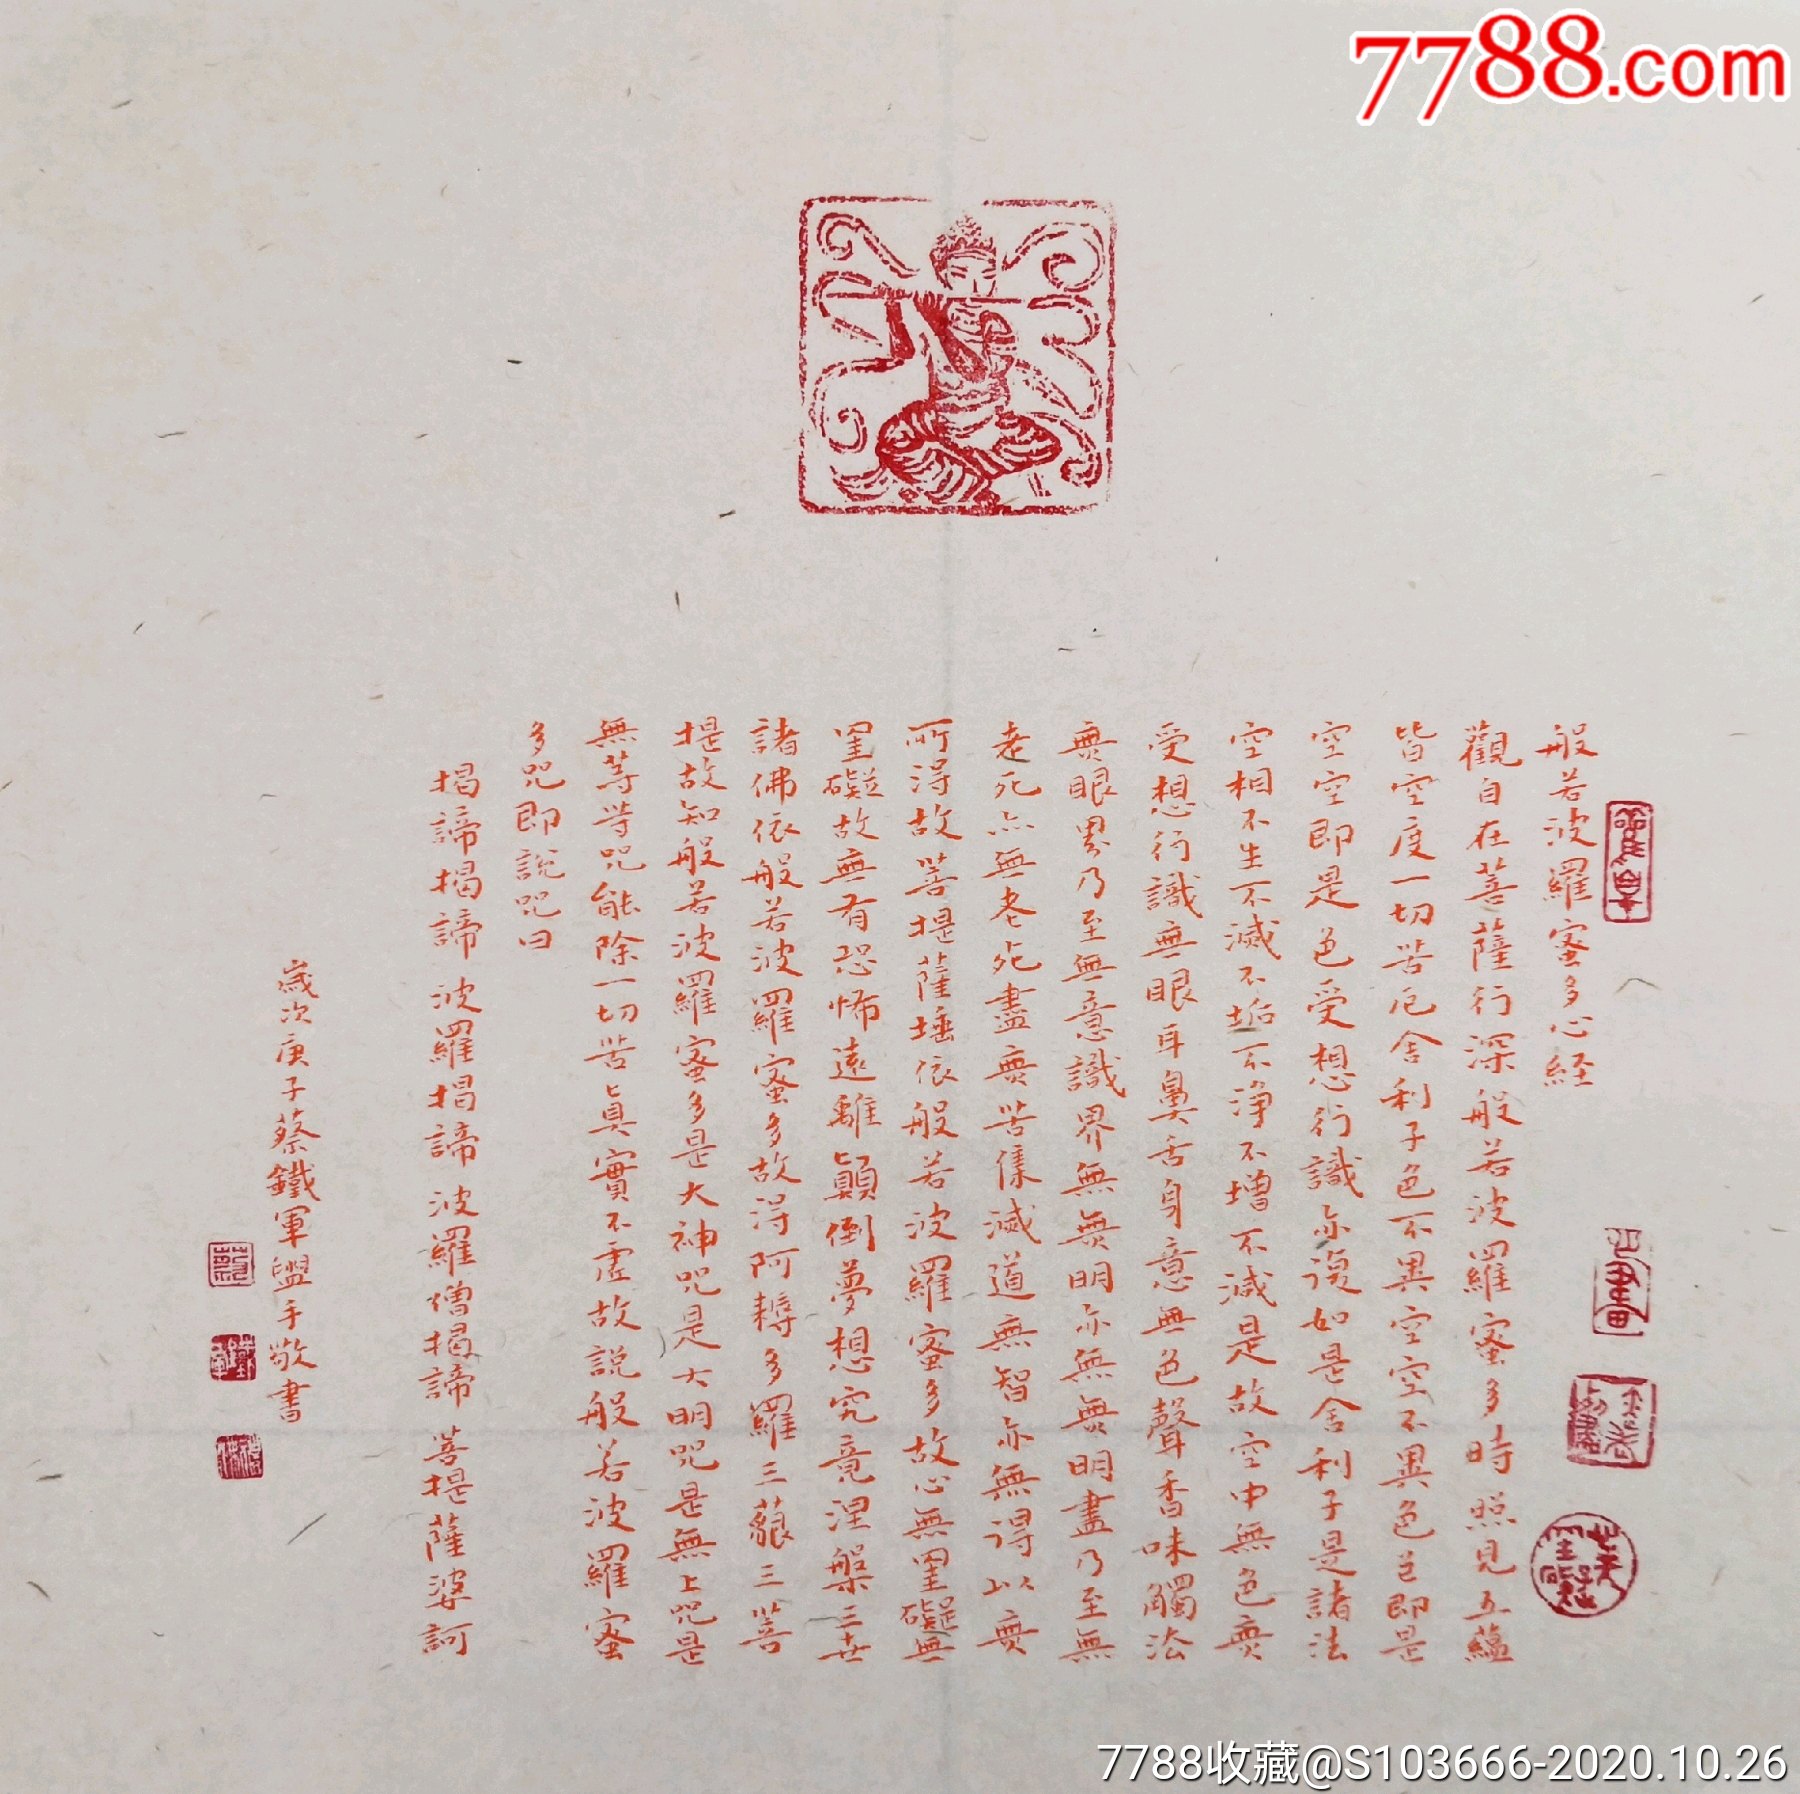 7788.com
般若波羅蜜多心経
觀自在菩薩行深般若波羅蜜多時照見五蘊
皆空度一切苦厄舍利子色不異空空不異色色即是
空空即是色受想行識亦復如是舍利子是諸法
空相不生不滅不垢不淨不增不減是故空中無色無
受想行識無眼耳鼻舌身意無色聲香味觸法
無眼界乃至無意識界無無明亦無無明盡乃至無
老死亦無老死盡無苦集滅道無智亦無得以無
所得故菩提薩埵依般若波羅蜜多故心無罣礙無
罣礙故無有恐怖遠離顛倒夢想究竟涅槃三世
諸佛依般若波羅蜜多故得阿耨多羅三藐三菩
提故知般若波羅蜜多是大神咒是大明咒是無上咒是
無等等咒能除一切苦真實不虛故說般若波羅蜜
多咒即說咒曰
揭諦揭諦 波羅揭諦 波羅僧揭諦 菩提薩婆訶
歲次庚子蔡鐵軍盥手敬書
蔡
鐵軍
7788收藏@S103666-2020.10.26